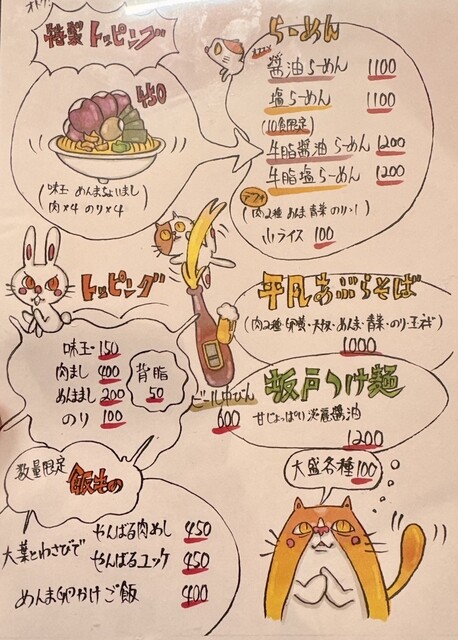 オトク!
特製トッピング
450
(味玉 めんまちょいまし)
肉×4 のり×4
らーめん
醤油らーめん 1100
塩らーめん 1100
(10食限定)
牛脂醤油らーめん 1200
牛脂塩らーめん 1200
(肉2種 めんま 青菜 のり・)
小ライス 100
トッピング
味玉・150
肉まし 400
めんまし 200
のり 100
背脂
50
ビール中びん
600
平凡あぶらそば
1000
坂戸つけ麺
甘じょっぱい淡麗醤油
1200
大盛各種100
数量限定
飯もの
大葉とわさびで
やんばる肉めし 450
やんばるユッケ 450
めんま卵かけご飯 400